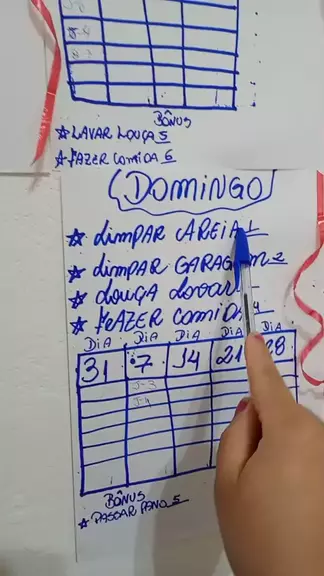 BÔNUS
★ LAVAR LOUÇA 5
★ FAZER COMIDA 6
DOMINGO
★ LIMPAR AREIA 1
★ LIMPAR GARAGEM 2
★ LOUÇA LAVAR
★ FAZER COMIDA 4
DIA DIA DIA DIA DIA
31 7 14 21 28
J-3
J-4
BÔNUS
★ PASSAR PANO 5